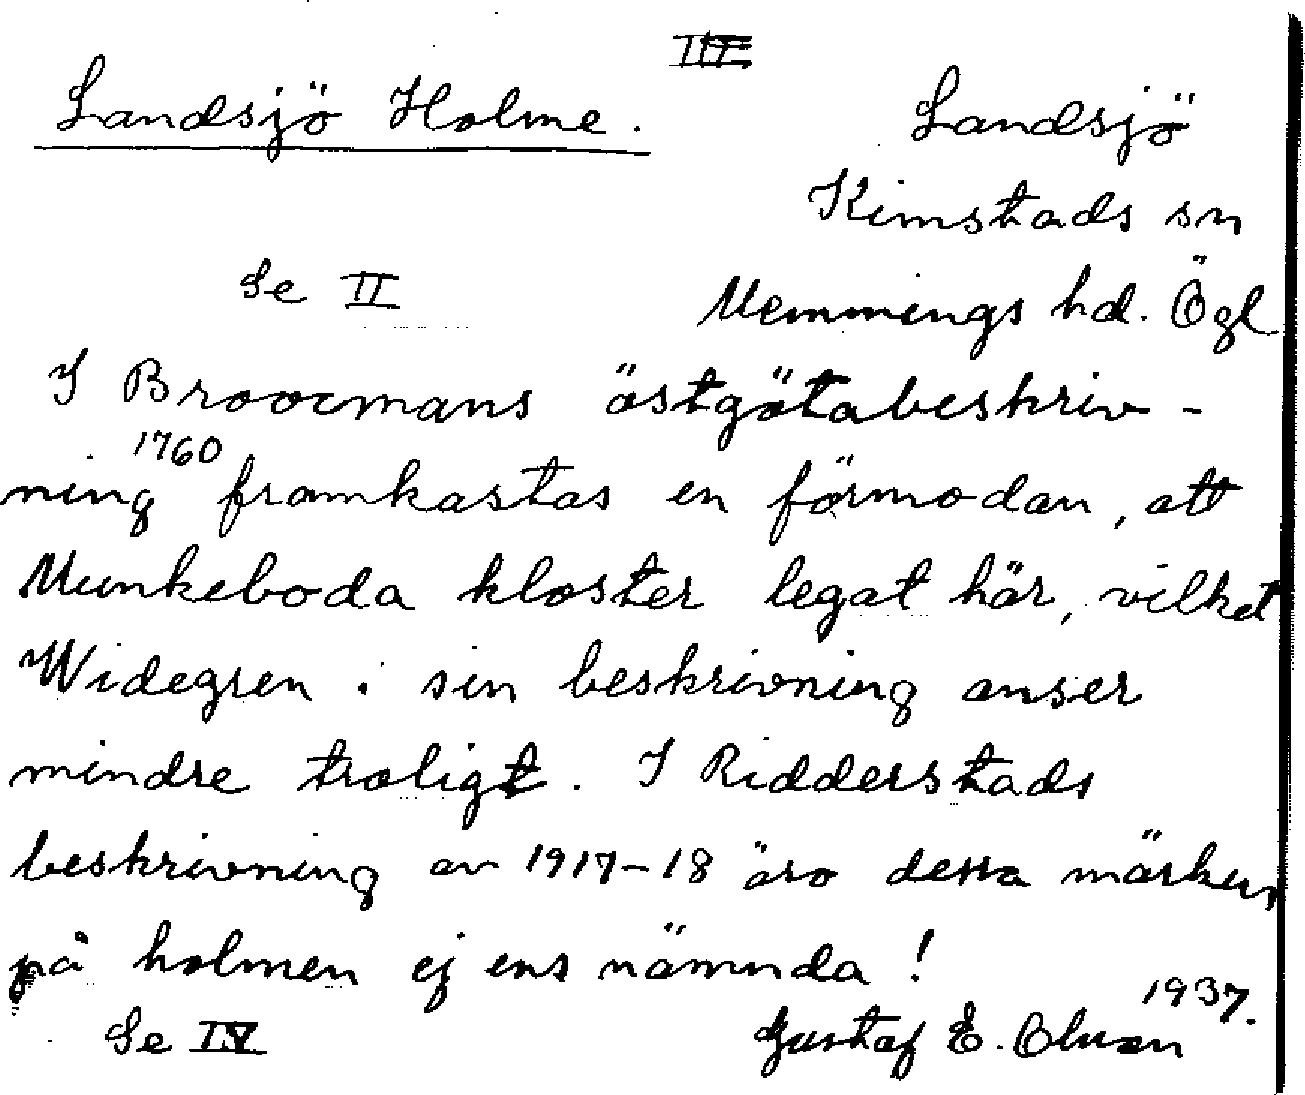 III
Landsjö Holme.
Landsjö
Kimstads sn
Memmings hd. Ögl
Se II
I Broocmans östgötabeskriv-
ning 1760 framkastas en förmodan, att
Munkeboda kloster legat här, vilket
Widegren i sin beskrivning anser
mindre troligt. I Ridderstads
beskrivning av 1917-18 äro dessa märken
på holmen ej ens nämnda!
1937.
Se IV
Gustaf E. Olsson